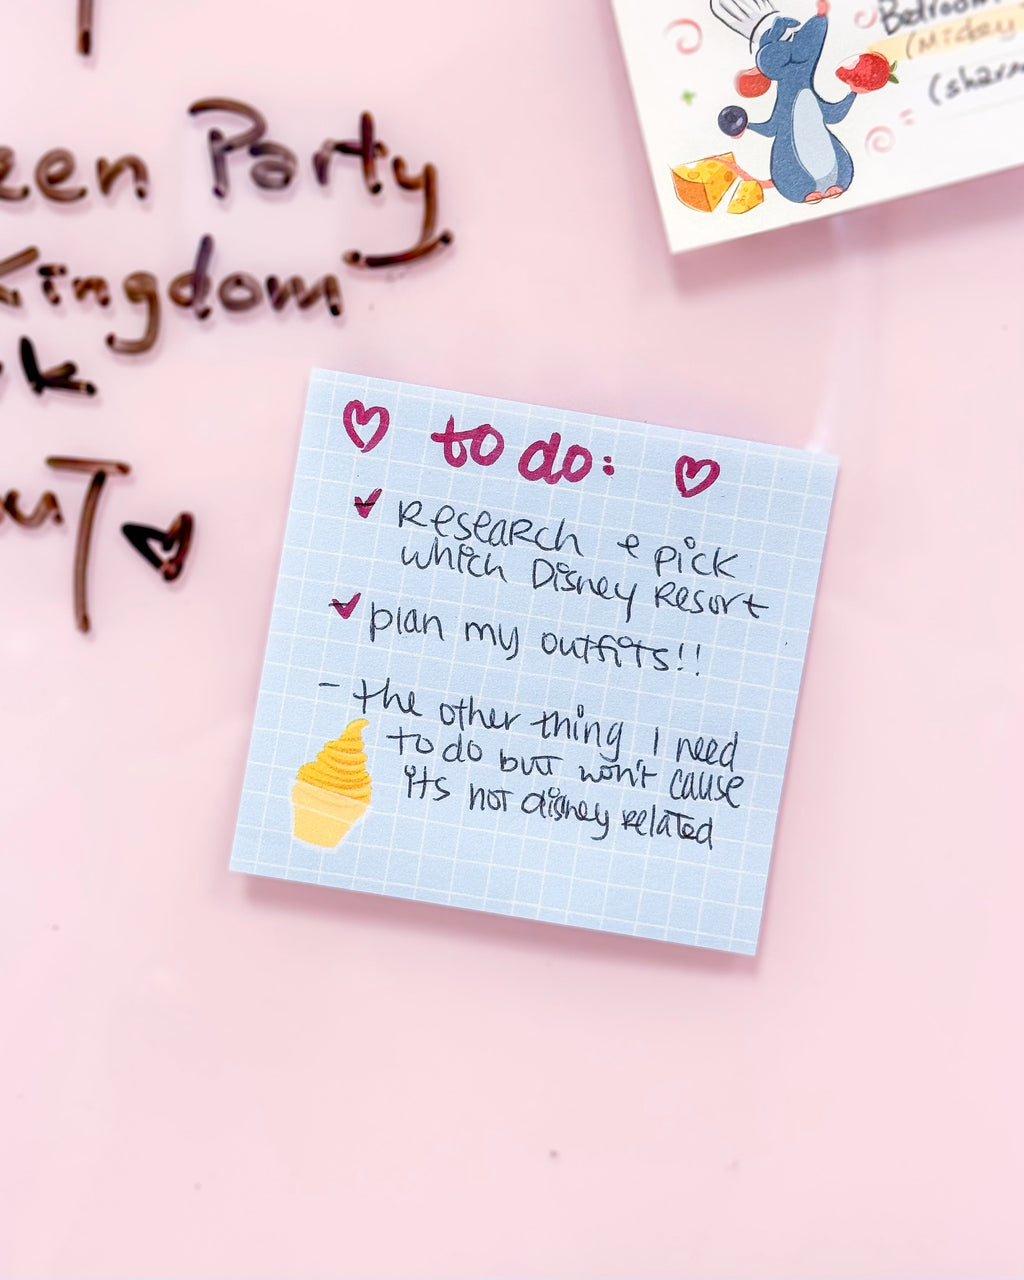 Party
Kingdom
Bedroom
(Mickey
to do:
Research + pick
which Disney Resort
plan my outfits!!
- the other thing I need
to do but won't cause
its not disney related